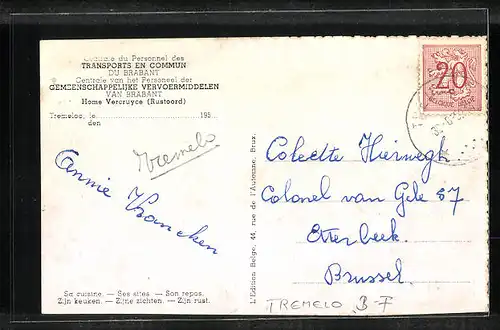 Centrale du Personnel des
TRANSPORTS EN COMMUN
DU BRABANT
Centrale van het Personeel der
GEMEENSCHAPPELIJKE VERVOERMIDDELEN
VAN BRABANT
Home Vercruyce (Rustoord)
Tremeloo, le 195
den
Tremelo
Annie Vrancken
Sa cuisine. — Ses sites. — Son repos.
Zijn keuken. — Zijne zichten. — Zijn rust.
L'Edition Belge, 44, rue de l'Automne, Brux.
20
BELGIQUE-BELGIE
Colette
Colonel van Gele 57
Etterbeek.
Brussel.
TREMELO B-F